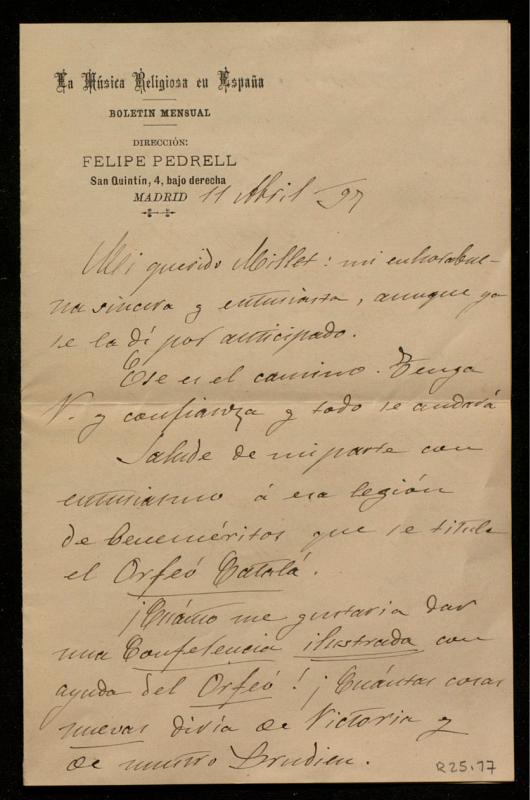 La Música Religiosa en España
BOLETIN MENSUAL
DIRECCIÓN:
FELIPE PEDRELL
San Quintín, 4, bajo derecha
MADRID 11 Abril 97
Mi querido Millet: mi enhorabue-
na sincera y entusiasta, aunque ya
se la dí por anticipado.
Ese es el camino. Tenga
V. y confianza y todo se andará
Salude de mi parte con
entusiasmo á esa legión
de beneméritos que se titula
el Orfeó Catalá.
¡Cuánto me gustaria dar
una Conferencia ilustrada con
ayuda del Orfeó! ¡Cuántas cosas
nuevas diría de Victoria y
de nuestro Brudieu.
R25.17